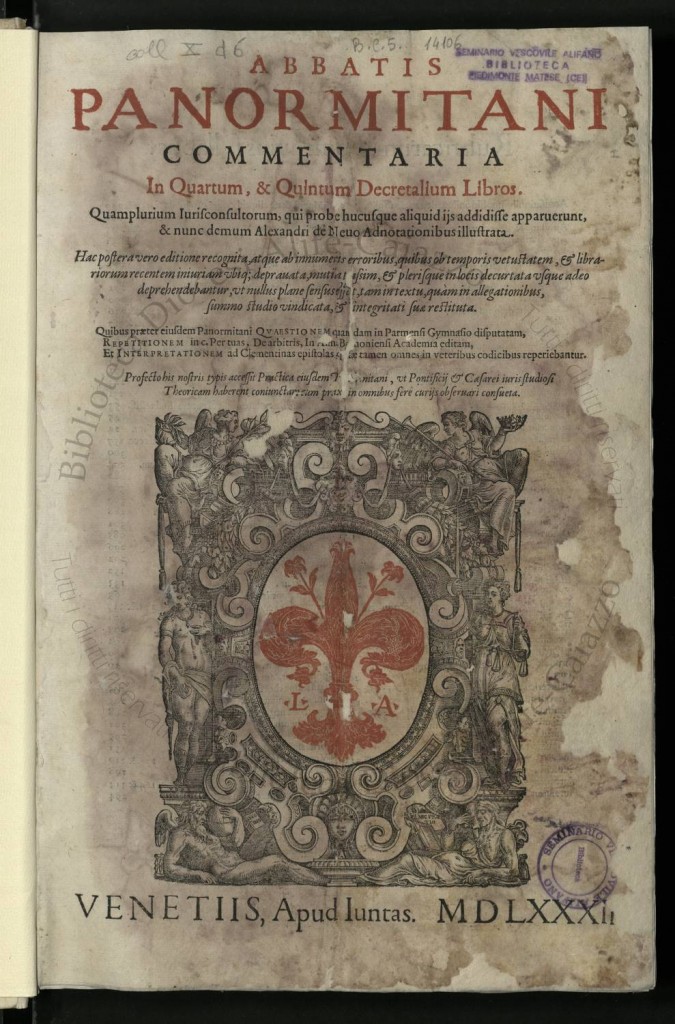 coll X d 6
B.C.5. 14106
SEMINARIO VESCOVILE ALIFANO
BIBLIOTECA
PIEDIMONTE MATESE (CE)
ABBATIS
PANORMITANI
COMMENTARIA
In Quartum, & Quintum Decretalium Libros.
Quamplurium Iurisconsultorum, qui probe hucusque aliquid ijs addidisse apparuerunt,
& nunc demum Alexandri de Neuo Adnotationibus illustrata.
Hac postera vero editione recognita, atque ab innumeris erroribus, quibus ob temporis vetustatem, & libra-
riorum recentem iniuriam vbiq; deprauata, mutia & plerisque in locis decurtata vsque adeo
deprehendebantur, vt nullus plane sensus tam in textu, quàm in allegationibus,
summo studio vindicata, & integritati suæ restituta.
Quibus præter eiusdem Panormitani QVAESTIONEM dam in Parmensi Gymnasio disputatam,
REPETITIONEM in c. Per tuas, De arbitris, In oniensi Academia editam,
Et INTERPRETATIONEM ad Clementinas epistolas tamen omnes in veteribus codicibus reperiebantur.
Profecto his nostris typis accessit Practica eiusdem mitani, vt Pontificij & Cæsarei iuris studiosi
Theoricam haberent coniunctam cum prax in omnibus fere curijs obseruari consueta.
L A
VENETIIS, Apud Iuntas. MDLXXXII
SEMINARIO
Tutti i diritti riservati